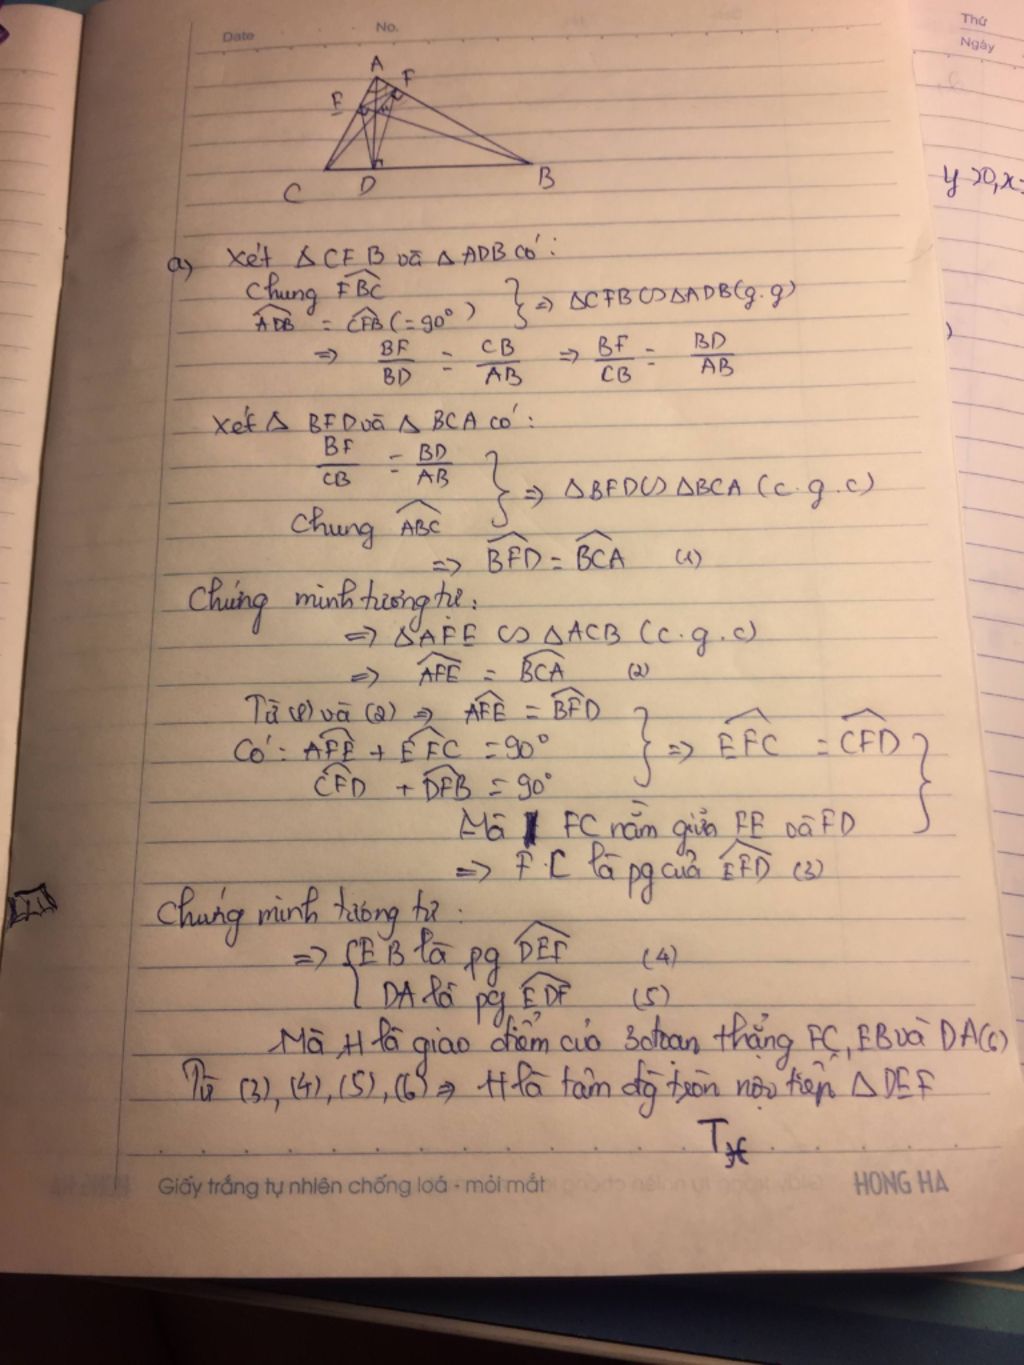 Date No.
Thứ
Ngày
A
F
E
C D B
y>0, x=
a) Xét △CFB và △ADB có:
Chung FBC^
ADB^ = CFB^ (=90°) } => △CFB ∽ △ADB (g.g)
=> BF/BD = CB/AB => BF/CB = BD/AB
Xét △ BFD và △ BCA có:
BF/CB = BD/AB
Chung ABC^ } => △BFD ∽ △BCA (c.g.c)
=> BFD^ = BCA^ (1)
Chứng minh tương tự:
=> △AFE ∽ △ACB (c.g.c)
=> AFE^ = BCA^ (2)
Từ (1) và (2) => AFE^ = BFD^
Có: AFE^ + EFC^ = 90°
CFD^ + DFB^ = 90° } => EFC^ = CFD^
Mà FC nằm giữa FE và FD }
=> FC là pg của EFD^ (3)
Chứng minh tương tự:
=> { EB là pg DEF^ (4)
DA là pg EDF^ (5)
Mà H là giao điểm của 3 đoạn thẳng FC, EB và DA (6)
Từ (3), (4), (5), (6) => H là tâm đg tròn nội tiếp △ DEF
Giấy trắng tự nhiên chống loá - mỏi mắt HONG HA